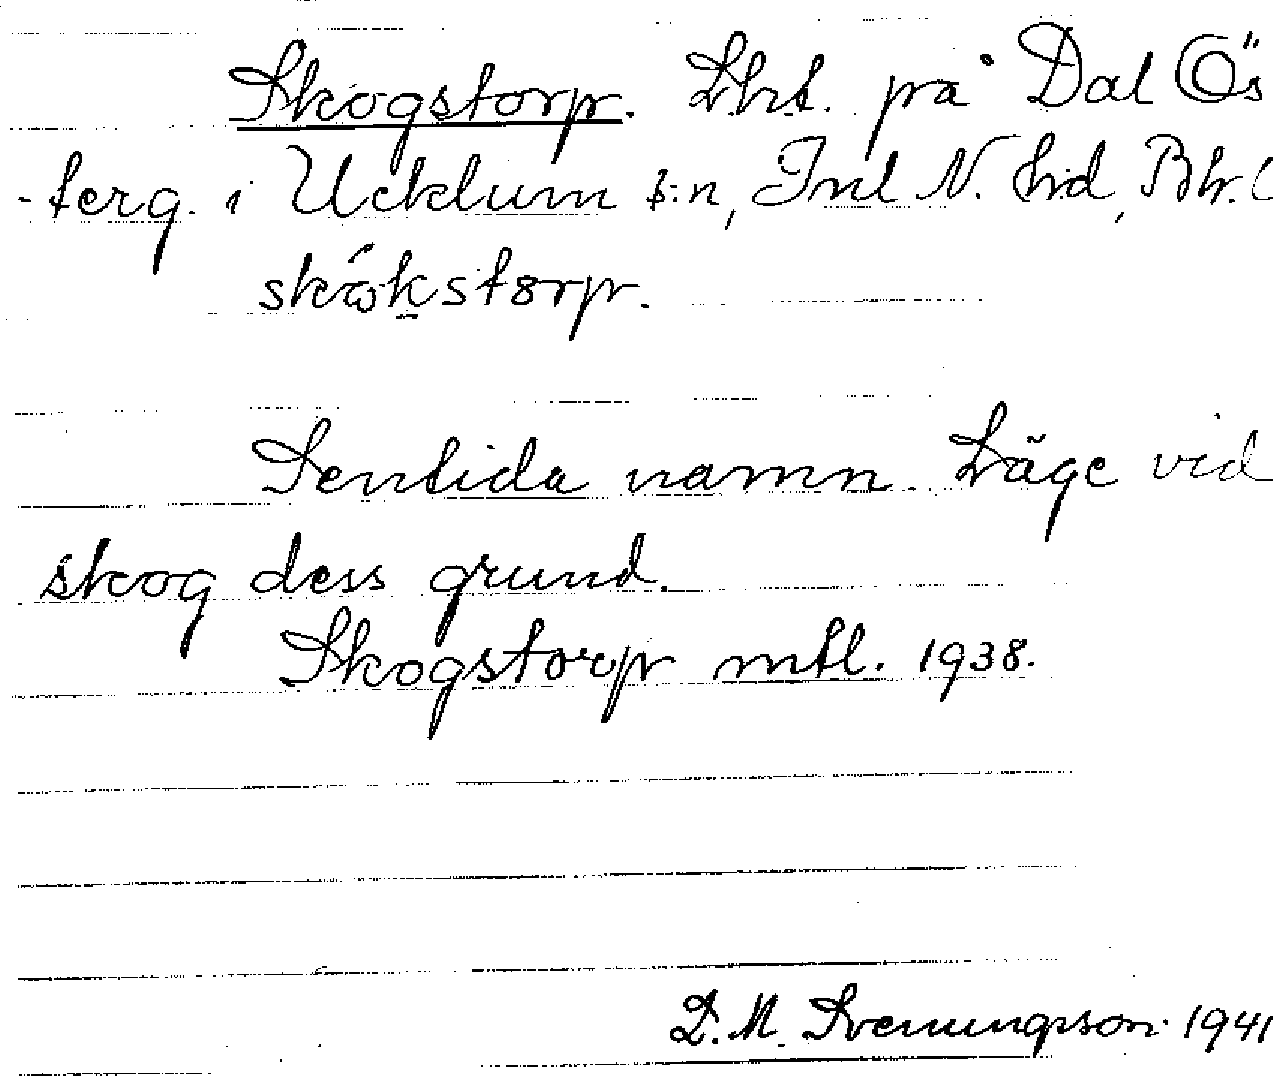 Skogstorp. Lht. på Dal Ös
-terg. i Ucklum s:n, Inl N. hd, Bhl.
skökstorp.
Sentida namn. Läge vid
skog dess grund.
Skogstorp mtl. 1938.
D. M. Svenungsson 1941